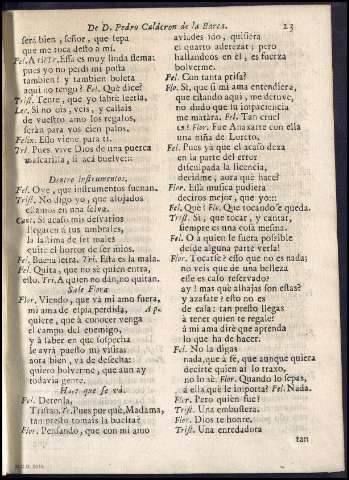 De D. Pedro Calderon de la Barca. 23
será bien, señor, que sepa
que me toca desto a mi.
Fel. A ti? Trist. Essa es muy linda flema:
pues yo no perdi mi posta
tambien? y tambien boleta
aqui no tengo? Fel. Què dice?
Trist. Tente, que yo sabrè leerla,
Lee. Si no ois, veis, y callais
de vuestro amo los regalos,
seràn para vos cien palos.
Felix. Esso viene para ti.
Tri. Pues vive Dios de una puerca
mascarilla, si acà buelve:::
Dentro instrumentos.
Fel. Oye, que instrumentos suenan.
Trist. No digo yo, que alojados
estamos en una selva.
Cant. Si acaso mis desvarios
llegaren à tus umbrales,
la lastima de ser males
quite el horror de ser mios.
Fel. Buena letra. Tri. Esta es la mala.
Fel. Quita, que no sè quien entra,
esto. Tri. A quien no dàn, no quitan.
Sale Flora
Flor. Viendo, que và mi amo fuera,
mi ama de elpia perdida, Ap.
quiere, que à conocer venga
el campo del enemigo,
y à saber en que sospecha
se avrà puesto mi visitas
aora bien, và de desecha:
quiero bolverme, que aun ay
todavia gente.
Hace que se và.
Fel. Detenla,
Tristan. Tr. Pues por què, Madama,
tan presto tomais la buelta?
Flor. Pensando, que con mi amo
aviades ido, quisiera
el quarto aderezar; pero
hallandoos en èl, es fuerza
bolverme.
Fel. Con tanta prisa?
Flo. Si, que si mi ama entendiera,
que estando aqui, me detuve,
no dudo que su impaciencia
me matàra. Fel. Tan cruel
es? Flor. Fue Anaxarte con ella
una niña de Loreto.
Fel. Pues yà que el acaso dexa
en la parte del error
disculpada la licencia,
decidme, aora què hace?
Flor. Essa musica pudiera
deciros mejor, que yo:::
Fel. Què? Flo. Que tocandose queda.
Trist. Si, que tocar, y cantar,
siempre es una cosa mesma.
Fel. O à quien le fuera possible
desde alguna parte verla!
Flor. Tocarse? esso que no es nada;
no veis que de una belleza
esse es caso reservado?
ay! mas què alhajas son estas?
y azafate? esto no es
de casa: tan presto llegas
à tener quien te regale?
à mi ama dirè que aprenda
lo que ha de hacer.
Fel. No la digas
nada, que à fe, que aunque quiera
decirte quien ai lo traxo,
no lo sè. Flor. Quando lo sepas,
à ella què le importa? Fel. Nada.
Flor. Pero quien fue?
Trist. Una embustera.
Flor. Dios te honre.
Trist. Una enredadora
tan